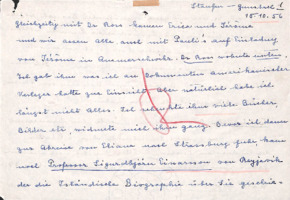 Staufen - Gunsbach 1
15.10.56
Gleichzeitig mit Dr Ross kamen Erica und Jérôme
und wir assen Alle auch mit Pauli's auf Einladung
von Jérôme in Ammerschwihr. Dr Ross wohnte unten.
Ich gab ihm was ich an Dokumenten Amerikanischer
Verleger hatte zur Einsicht. Aber natürlich habe ich
längst nicht Alles. Ich schenkte ihm viele Bücher,
Bilder etc, widmete mich ihm ganz. Bevor ich dann
zur Abreise von Eliane nach Strassburg fuhr, kam
noch Professor Sigurdbjörn Einarsson von Reykjavik
der die Isländische Biographie über Sie geschrie-